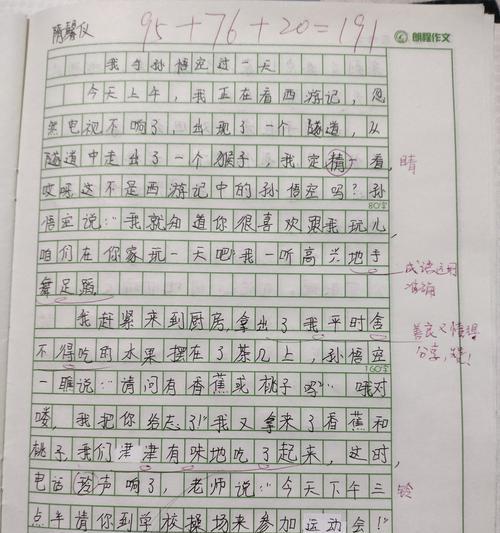 隋馨仪 95+76+20=191 朗程作文
我与孙悟空过一天
今天上午，我正在看西游记，忽
然电视不响了，出现了一个隧道，从
隧道中走出了一个猴子，我定精一看， 睛
哎呀这不是西游记中的孙悟空吗？孙
80字
悟空说：“我就知道你很喜欢跟我玩儿
咱们在你家玩一天吧”我一听高兴地手
舞足蹈 成语运用
准确
我赶紧来到厨房，拿出了我平时舍 善良又懂得
不得吃的水果摆在了茶几上，孙悟空 分享，
160字
一瞧说：“请问有香蕉或桃子吗？”“哦对
喽，我把你给忘了！”我又拿来了香蕉和
桃子，我们津津有味地吃了起来，这时，
电话声响了，老师说：“今天下午三 铃
点半请你到学校操场来参加运动会！”